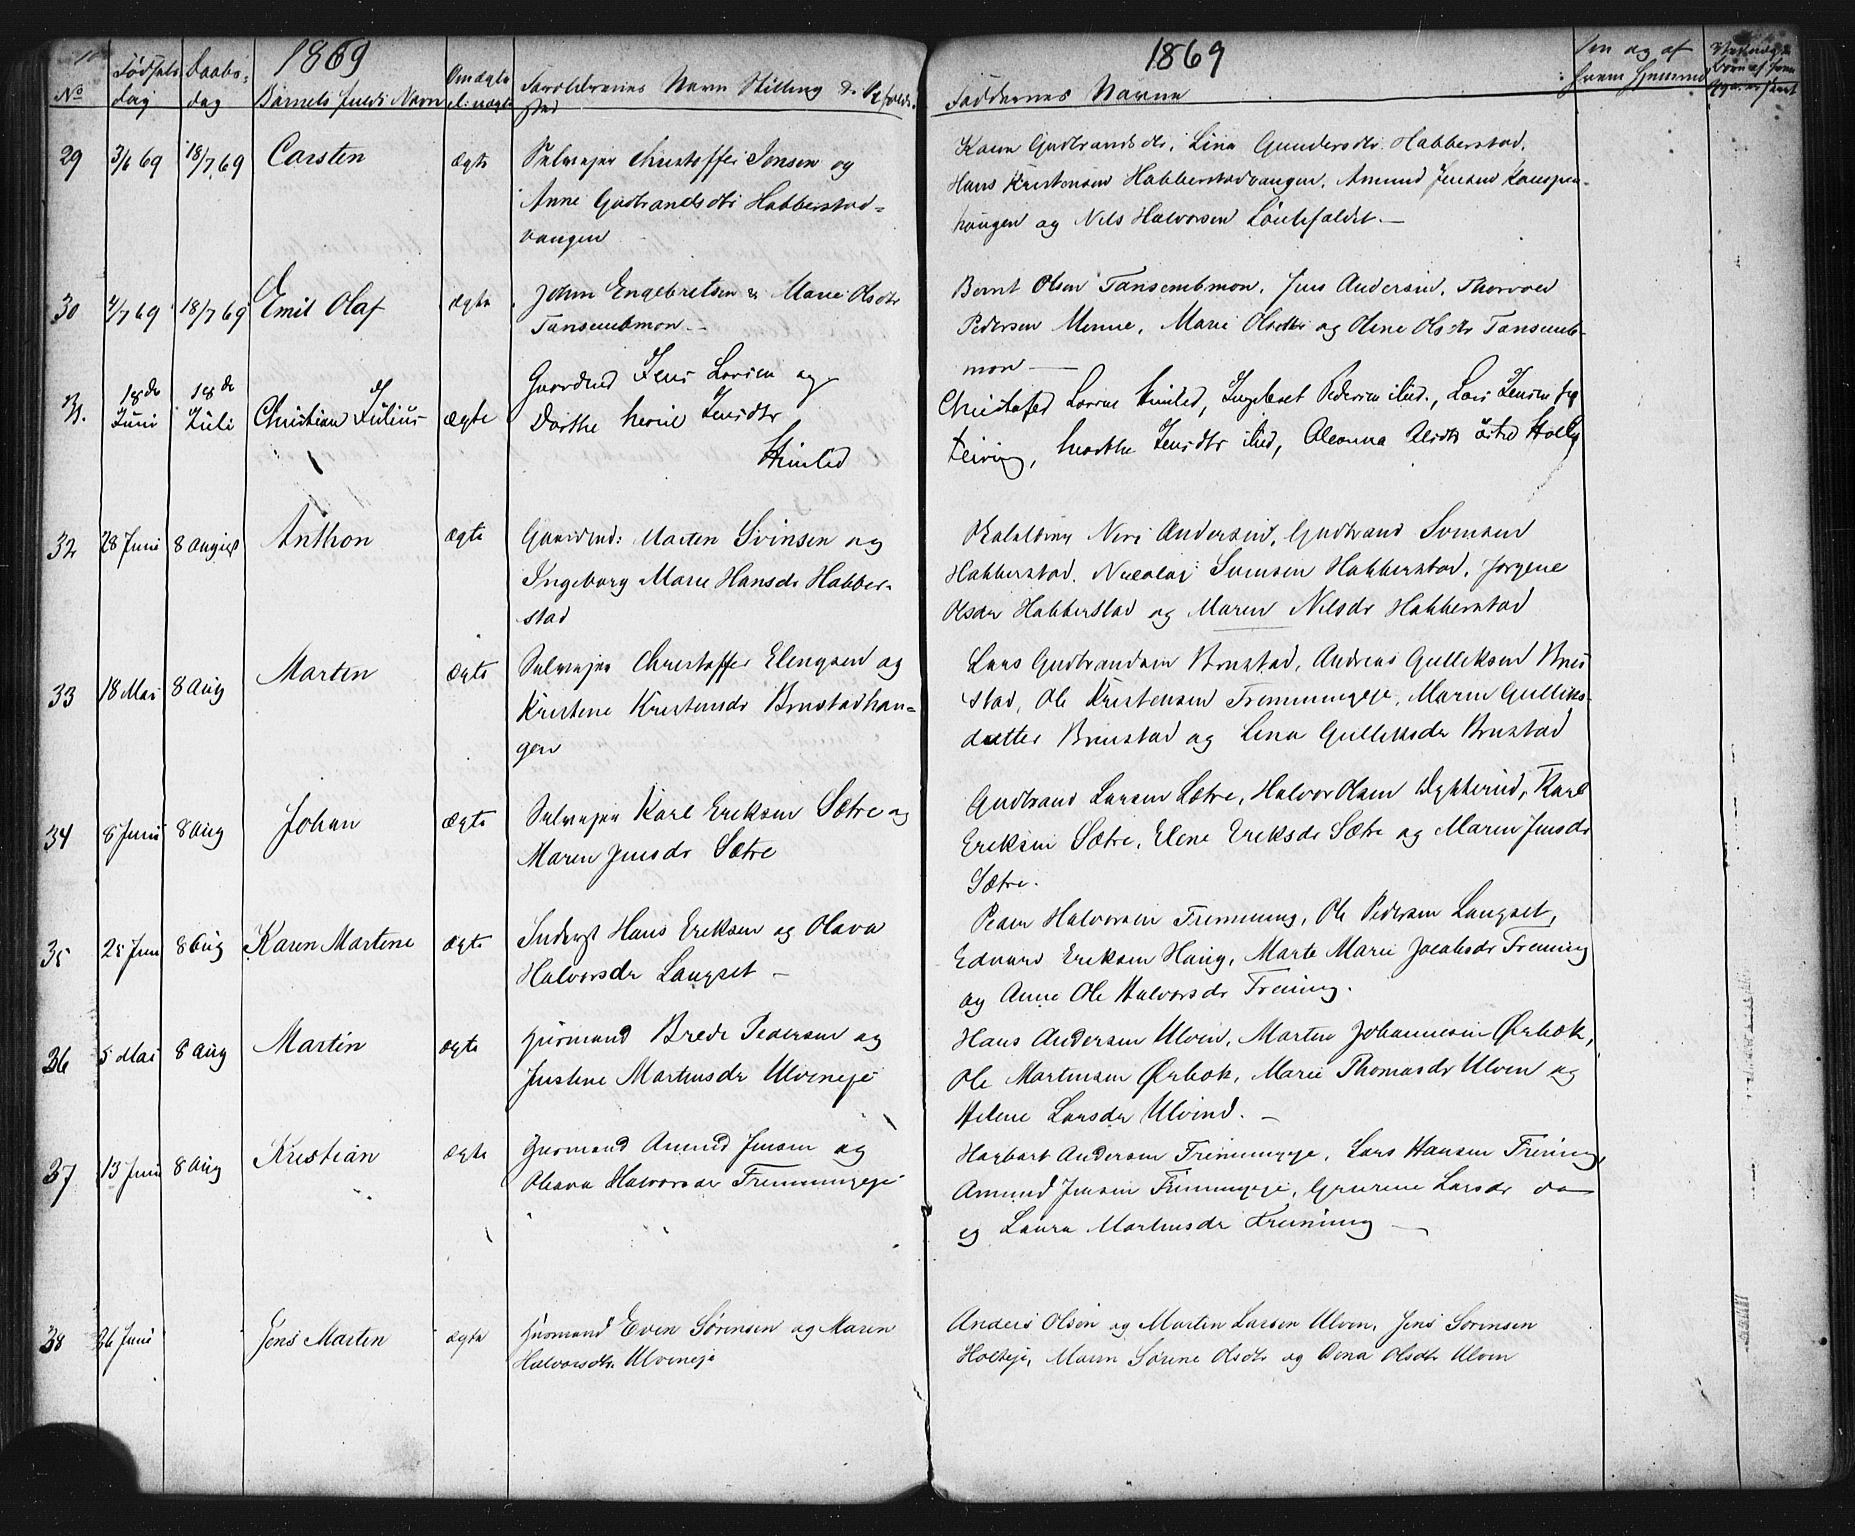 1869
1869
No
Fødsels
dag
Daabs-
dag
Barnets fulde Navn
Om ægte
el. uægte
Forældrenes Navn Stilling &
Faddernes Navne
29 3/6 69 18/7 69 Carsten ægte
Selveier Christoffer Jensen og
Anne Gudbrandsdtr Habberstad-
vangen
Karen Gudbrandsdtr, Lina Gundersdtr Habberstad,
Hans Kristensen Habberstadvangen, Amund Jensen
haugen og Nils Halvorsen
30 4/7 69 18/7 69 Emil Olaf ægte
Johan Engebretsen & Marie Olsdtr
Tansembmon
Bernt Olsen Tansembmon, Jens Andersen, Thorvald
Pedersen Menne, Marie Olsdtr og Oline Olsdtr Tansemb-
mon
31. 18de Juni 18de Juli Christian Julius ægte
Gaardmd Jens Larsen og
Dorthe Jensdtr
Himlid
Larsen Himlid, Ingebret Pedersen ibid., Lars Jensen
Marthe Jensdtr ibid, østre
32 28 Juni 8 August Anthon ægte
Gaardmd: Marten Svensen og
Ingeborg Marie Hansdr Habber-
stad
Andersen, Gudbrand Svensen
Habberstad, Nicolai Svensen Habberstad, Jørgene
Olsdr Habberstad og Maren Nilsdr Habberstad
33 18 Mai 8 Aug Marten ægte
Selveier Christoffer Elingsen og
Kristene Kristensdr Brustadhau-
gen
Lars Gudbrandsen Brustad, Andreas Gulliksen Bru
stad, Ole Kristensen Fremmingeje, Maren Gulliks-
datter Brustad og Lina Gulliksdr Brustad
34 8 Juni 8 Aug Johan ægte
Selveier Karl Eriksen Sætre og
Maren Jensdr Sætre
Gudbrand Larsen Sætre, Halvor Olsen Karl
Eriksen Sætre, Elene Eriksdr Sætre og Maren Jensdr
Sætre.
35 25 Juni 8 Aug Karen Martene ægte
Inderst Hans Eriksen og Olava
Halvorsdr Langset
Peder Halvorsen Fremming, Ole Pedersen Langset,
Edvard Eriksen Haug, Marte Marie Jacobsdr Frening
og Anne Ole Halvorsdr Frening.
36 5 Mai 8 Aug Martin ægte
Huusmand Brede Pedersen og
Justine Martinsdr Ulveneje
Hans Andersen Ulven, Marten Johannesen Ørbæk,
Ole Martinsen Ørbæk, Marie Thomasdr Ulven og
Helene Larsdr Ulvend.
37 13 Juni 8 Aug Kristian ægte
Huusmand Amund Jensen og
Oleava Halvorsdr Fremmingeje
Hagbart Andersen Fremmingeje, Lars Hansen Frening,
Amund Jensen Fremmingeje, Larsdr do
og Laura Martinsdr Freming
38 26 Juni Jens Marten ægte
Huusmand Even Sørensen og Maren
Halvorsdtr Ulveneje
Anders Olsen og Martin Larsen Ulven, Jens Sørensen
Holteje, Maren Sørine Olsdtr og Olsdtr Ulven